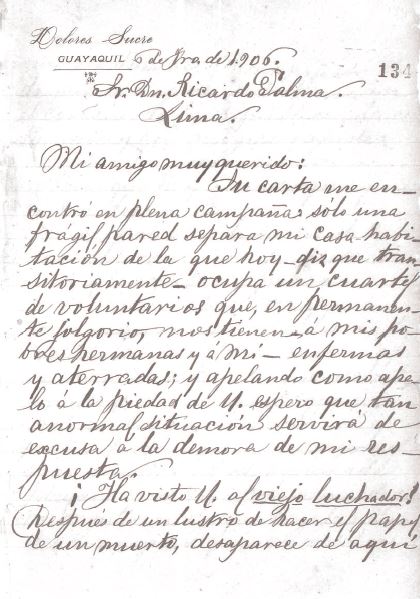 Dolores Sucre
GUAYAQUIL 6 de Fro. de 1906.
134
Sr. Dn. Ricardo Palma.
Lima.
Mi amigo muy querido:
Tu carta me en-
contró en plena campaña: sólo una
frágil pared separa mi casa habi-
tación de la que hoy-diz que tran
sitoriamente- ocupa un cuartel
de voluntarios que, en permanen-
te jolgorio, nos tienen-a mis po-
bres hermanas y á mí- enfermas
y aterradas; y apelando como ape-
lo á la piedad de U. espero que tan
anormal situación servirá de
excusa á la demora de mi res-
puesta.
¡Ha visto U. al viejo luchador!
Después de un lustro de hacer el papel
de un muerto, desaparece de aquí